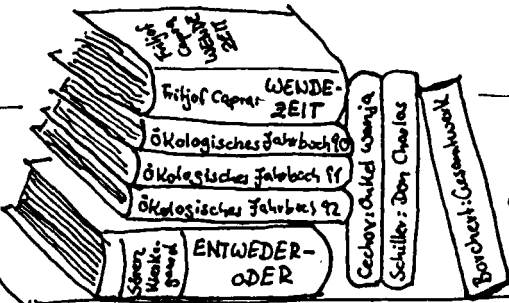 Fritjof
Capra
WENDE
ZEIT
Fritjof Capra:
WENDE-
ZEIT
Ökologisches Jahrbuch 90
Ökologisches Jahrbuch 91
Ökologisches Jahrbuch 92
Sören
Kierke-
gaard
ENTWEDER-
ODER
Cechov: Onkel Wanja
Schiller: Don Charlos
Borchert: Gesamtwerk